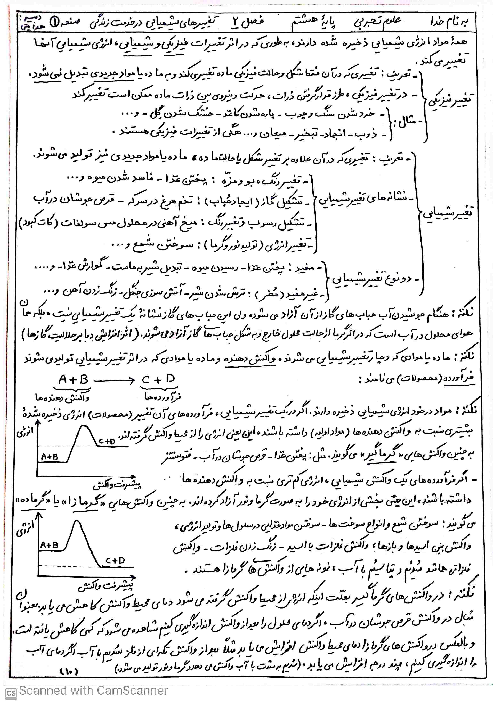 به نام خدا علوم تجربی پایهٔ هشتم فصل ۲ تغییرهای شیمیایی در خدمت زندگی صفحه ①
همهٔ مواد انرژی شیمیایی ذخیره شده دارند، به طوری که در اثر تغییرات فیزیکی و شیمیایی، انرژی شیمیایی آنها
تغییر می کند.
تغییر فیزیکی
- تعریف: تغییری که در آن فقط شکل و حالت فیزیکی ماده تغییر می کند و ماده یا مواد جدیدی تبدیل نمی شود.
- در تغییر فیزیکی، طرز قرار گرفتن ذرات، حرکت و نیروی بین ذرات ماده ممکن است تغییر کند
- مثال:
- خرد شدن سنگ و چوب - پاره شدن کاغذ - خشک شدن گل - و...
- ذوب - انجماد - تبخیر - میعان و... همگی از تغییرات فیزیکی هستند.
تغییر شیمیایی
- تعریف: تغییری که در آن علاوه بر تغییر شکل یا حالت ماده، ماده یا مواد جدیدی نیز تولید می شوند.
- نشانه های تغییر شیمیایی
- تغییر رنگ، بو و مزه: پختن غذا - فاسد شدن میوه و...
- تشکیل گاز (ایجاد حباب): تخم مرغ در سرکه - قرص جوشان در آب
- تشکیل رسوب و تغییر رنگ: میخ آهنی در محلول مس سولفات (کات کبود)
- تغییر انرژی (تولید نور و گرما): سوختن شمع و...
- دو نوع تغییر شیمیایی
- مفید: پختن غذا - رسیدن میوه - تبدیل شیر به ماست - گوارش غذا - و...
- غیر مفید (مضر): ترش شدن شیر - آتش سوزی جنگل - زنگ زدن آهن و...
نکته: هنگام جوشیدن آب حباب های گاز از آن آزاد می شود ولی این حباب های گاز نشانهٔ یک تغییر شیمیایی نیست، بلکه
هوای محلول در آب است که در اثر گرما از حالت محلول خارج و به شکل حباب ها گاز آزاد می شوند. (اثر افزایش دما بر حلالیت گازها)
نکته: ماده یا موادی که دچار تغییر شیمیایی می شوند، واکنش دهنده و ماده یا موادی که در اثر تغییر شیمیایی تولید می شوند
فرآورده (محصولات) می نامند:
A+B → C+D
واکنش دهنده ها فرآورده ها
نکته: مواد در خود انرژی شیمیایی ذخیره دارند. اگر در یک تغییر شیمیایی، فرآورده های آن تغییر (محصولات) انرژی ذخیره شدهٔ
بیشتری نسبت به واکنش دهنده ها (مواد اولیه) داشته باشند، این یعنی انرژی را از محیط واکنش گرفته اند.
به چنین واکنش هایی «گرماگیر» می گویند. مثل: پختن غذا - قرص جوشان در آب - فتوسنتز
انرژی
A+B
C+D
پیشرفت واکنش
- اگر فرآورده های یک واکنش شیمیایی، انرژی کم تری نسبت به واکنش دهنده ها
داشته باشند، این یعنی بخشی از انرژی خود را به صورت گرما و نور آزاد کرده اند. به چنین واکنش هایی «گرمازا» یا «گرماده»
می گویند: سوختن شمع و انواع سوخت ها - سوختن مواد غذایی در سلول ها و تولید انرژی،
واکنش بین اسیدها و بازها، واکنش فلزات با اسید - زنگ زدن فلزات - واکنش
فلزاتی مانند سدیم و پتاسیم با آب، نمونه هایی از واکنش ها گرمازا هستند.
انرژی
A+B
C+D
پیشرفت واکنش
نکته: در واکنش های گرماگیر بعلت اینکه انرژی از محیط واکنش گرفته می شود دمای محیط واکنش کاهش می یابد. بعنوان
مثال در واکنش قرص جوشان در آب، اگر دمای محلول را بعد از واکنش اندازه گیری کنیم مشاهده می شود که کمی کاهش یافته است.
و بالعکس در واکنش های گرمازا دمای محیط واکنش افزایش می یابد مثلاً بعد از واکنش تکه ای از فلز سدیم با آب اگر دمای آب
را اندازه گیری کنیم، چند درجه افزایش می یابد. (سدیم به شدت با آب واکنش می دهد و گرما و نور تولید می شود) (۱۰)
CS Scanned with CamScanner